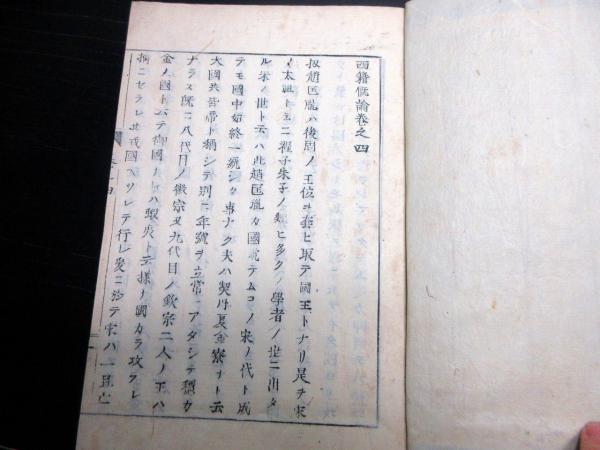 西籍慨論卷之四
扨趙匡胤ハ後周ノ王位ヲ奪ヒ取テ國王トナリ是ヲ宋
ノ太祖ト云ニ程子朱子ノ類ヒ多クノ學者ノ世ニ出タ
ル宋ノ世ト云ハ此趙匡胤カ國テムコノ宋ノ代ト成
テモ國中始終一統シタ事ナク夫ハ契丹夏金寮ナト云
大國共皆帝ト稱シテ別ニ年號ヲ立常ニアタシテ穩カ
ナラス既ニ八代目ノ徽宗又九代目ノ欽宗二人ノ王ハ
金ノ國ト云テ御國ノ ハ蝦夷ト云様ナ國カラ攻ラレ
擒ニセラレ其戎國ヘツレテ行レ爰ニ於テ宋ハ一旦亡